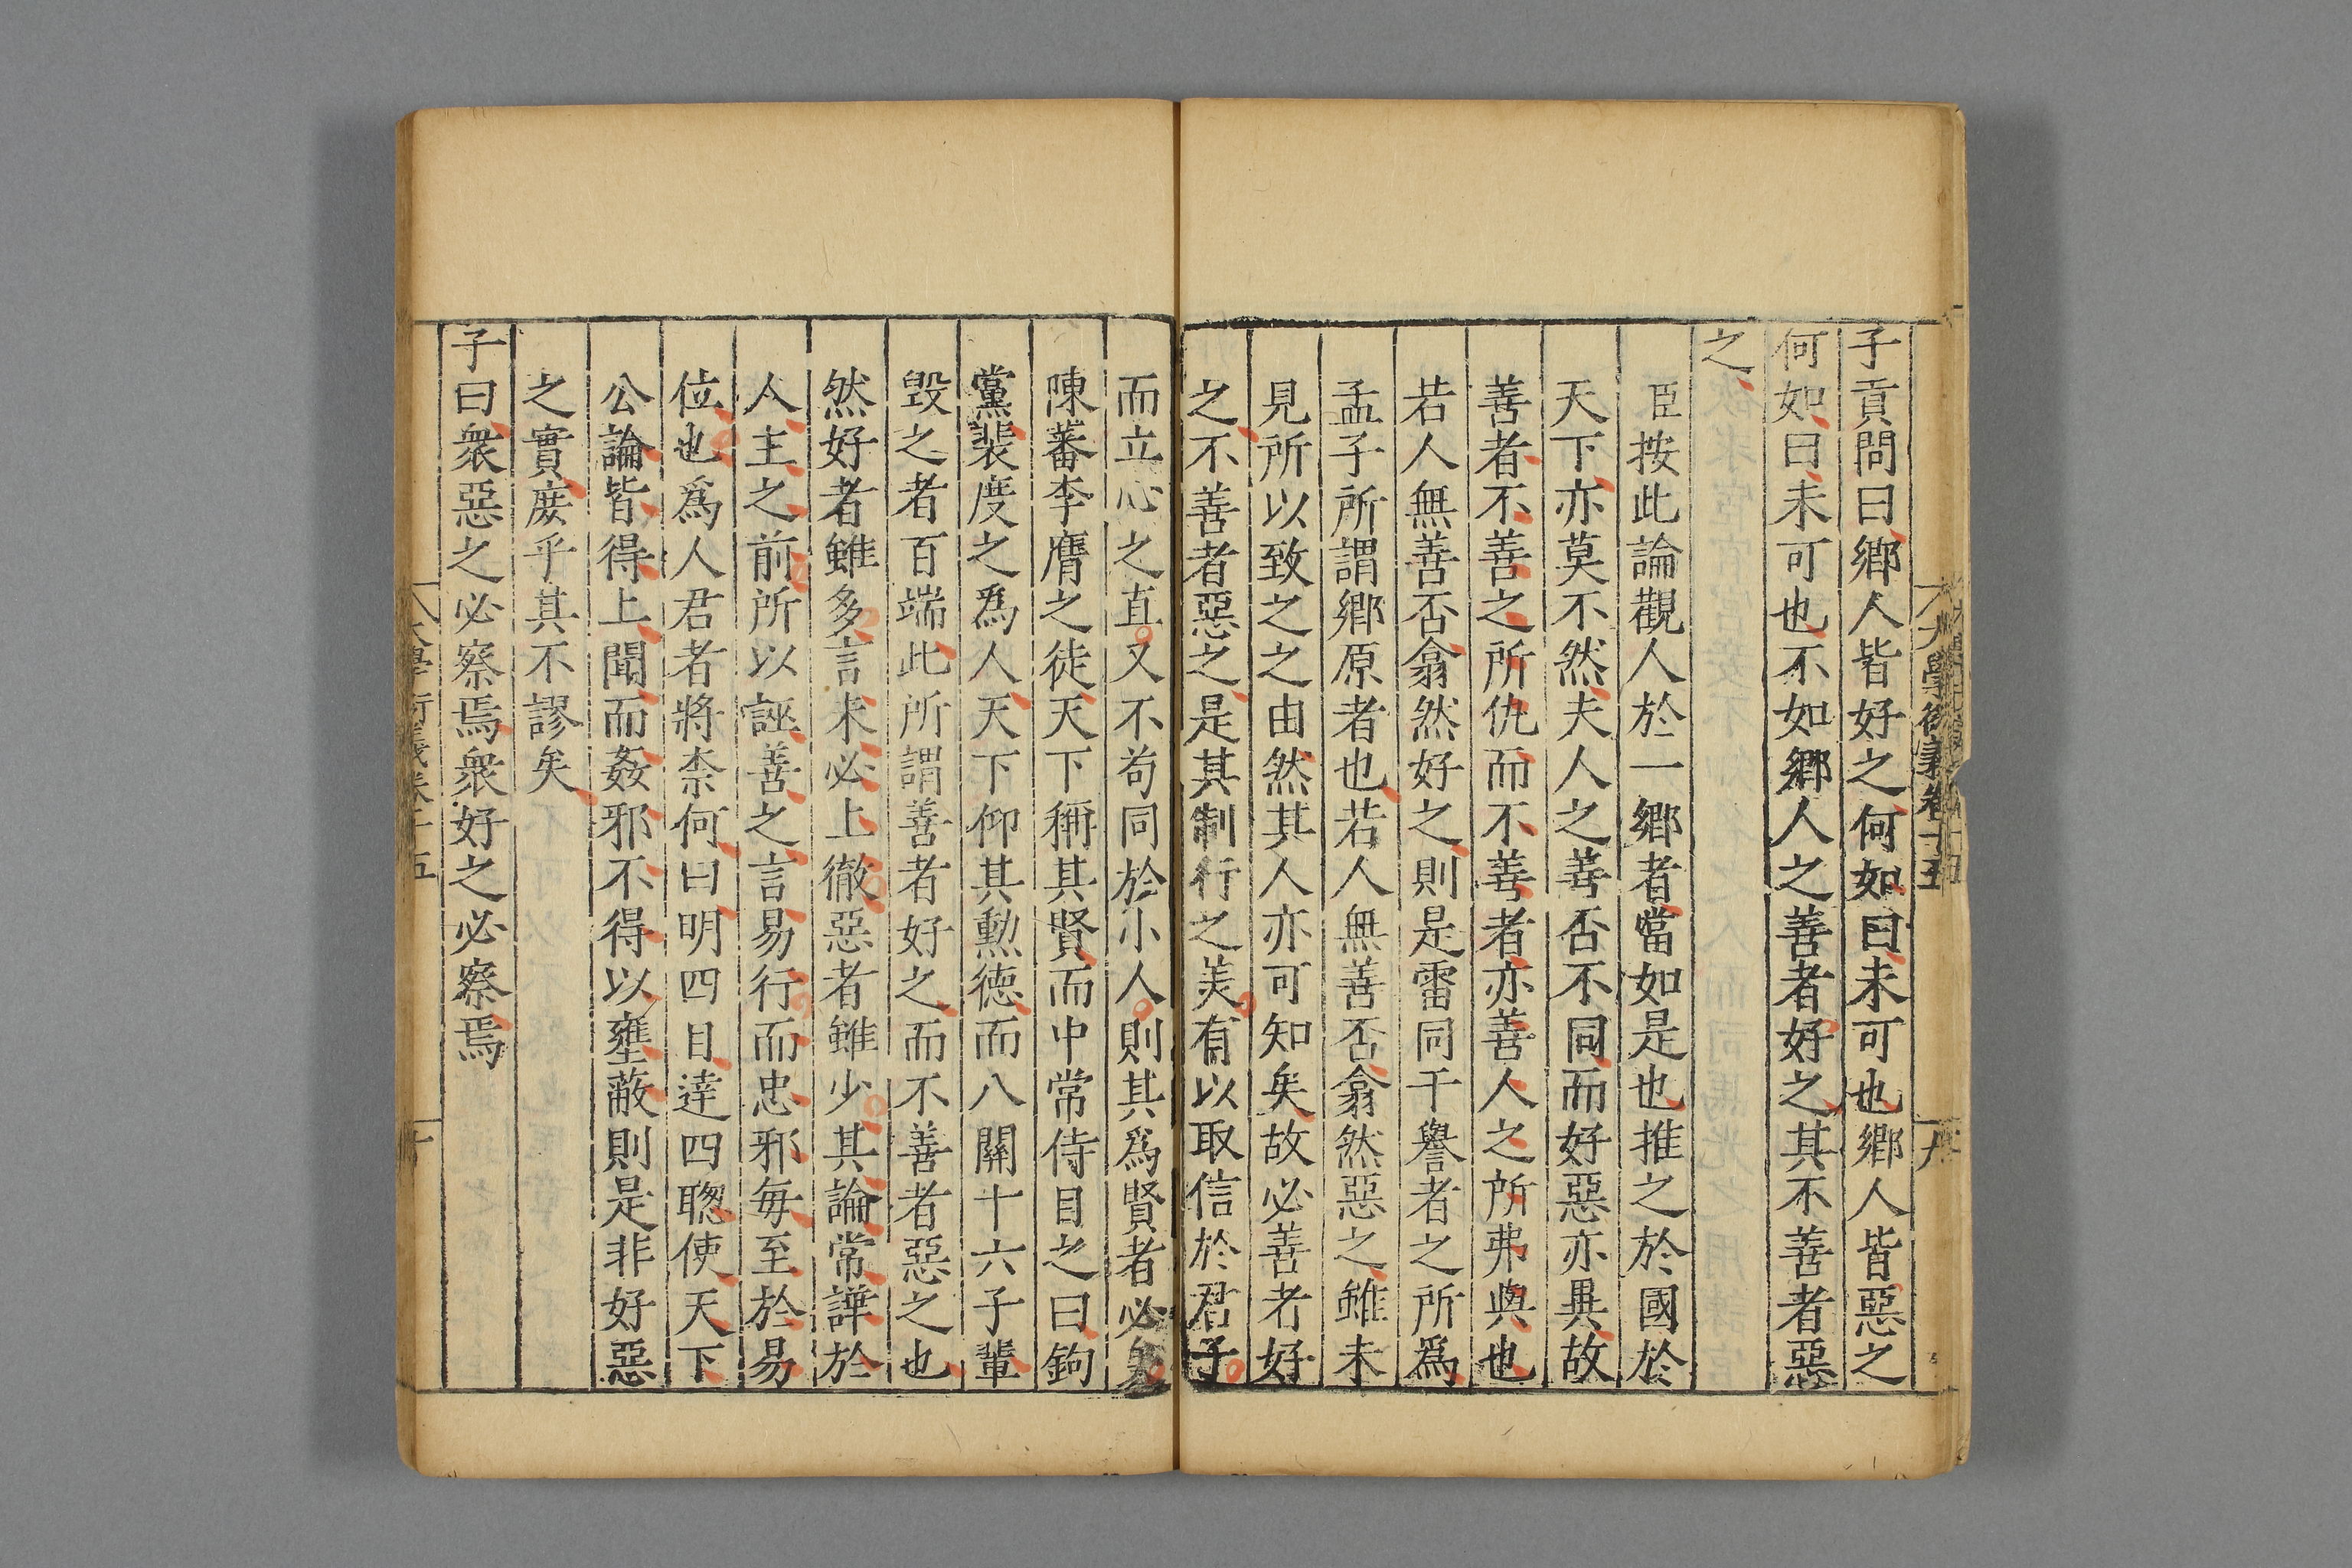 大學衍義卷十五
九
子貢問曰鄉人皆好之何如曰未可也鄉人皆惡之
何如曰未可也不如鄉人之善者好之其不善者惡
之
臣按此論觀人於一鄉者當如是也推之於國於
天下亦莫不然夫人之善否不同而好惡亦異故
善者不善之所仇而不善者亦善人之所弗與也
若人無善否翕然好之則是雷同干譽者之所爲
孟子所謂鄉原者也若人無善否翕然惡之雖未
見所以致之之由然其人亦可知矣故必善者好
之不善者惡之是其制行之美有以取信於君子
而立心之直又不苟同於小人則其爲賢者必矣
陳蕃李膺之徒天下稱其賢而中常侍目之曰鉤
黨裴度之爲人天下仰其勲德而八關十六子輩
毀之者百端此所謂善者好之而不善者惡之也
然好者雖多言未必上徹惡者雖少其論常譁於
人主之前所以誣善之言易行而忠邪每至於易
位也爲人君者將柰何曰明四目達四聦使天下
公論皆得上聞而姦邪不得以壅蔽則是非好惡
之實庶乎其不謬矣
子曰衆惡之必察焉衆好之必察焉
大學衍義卷十五
十